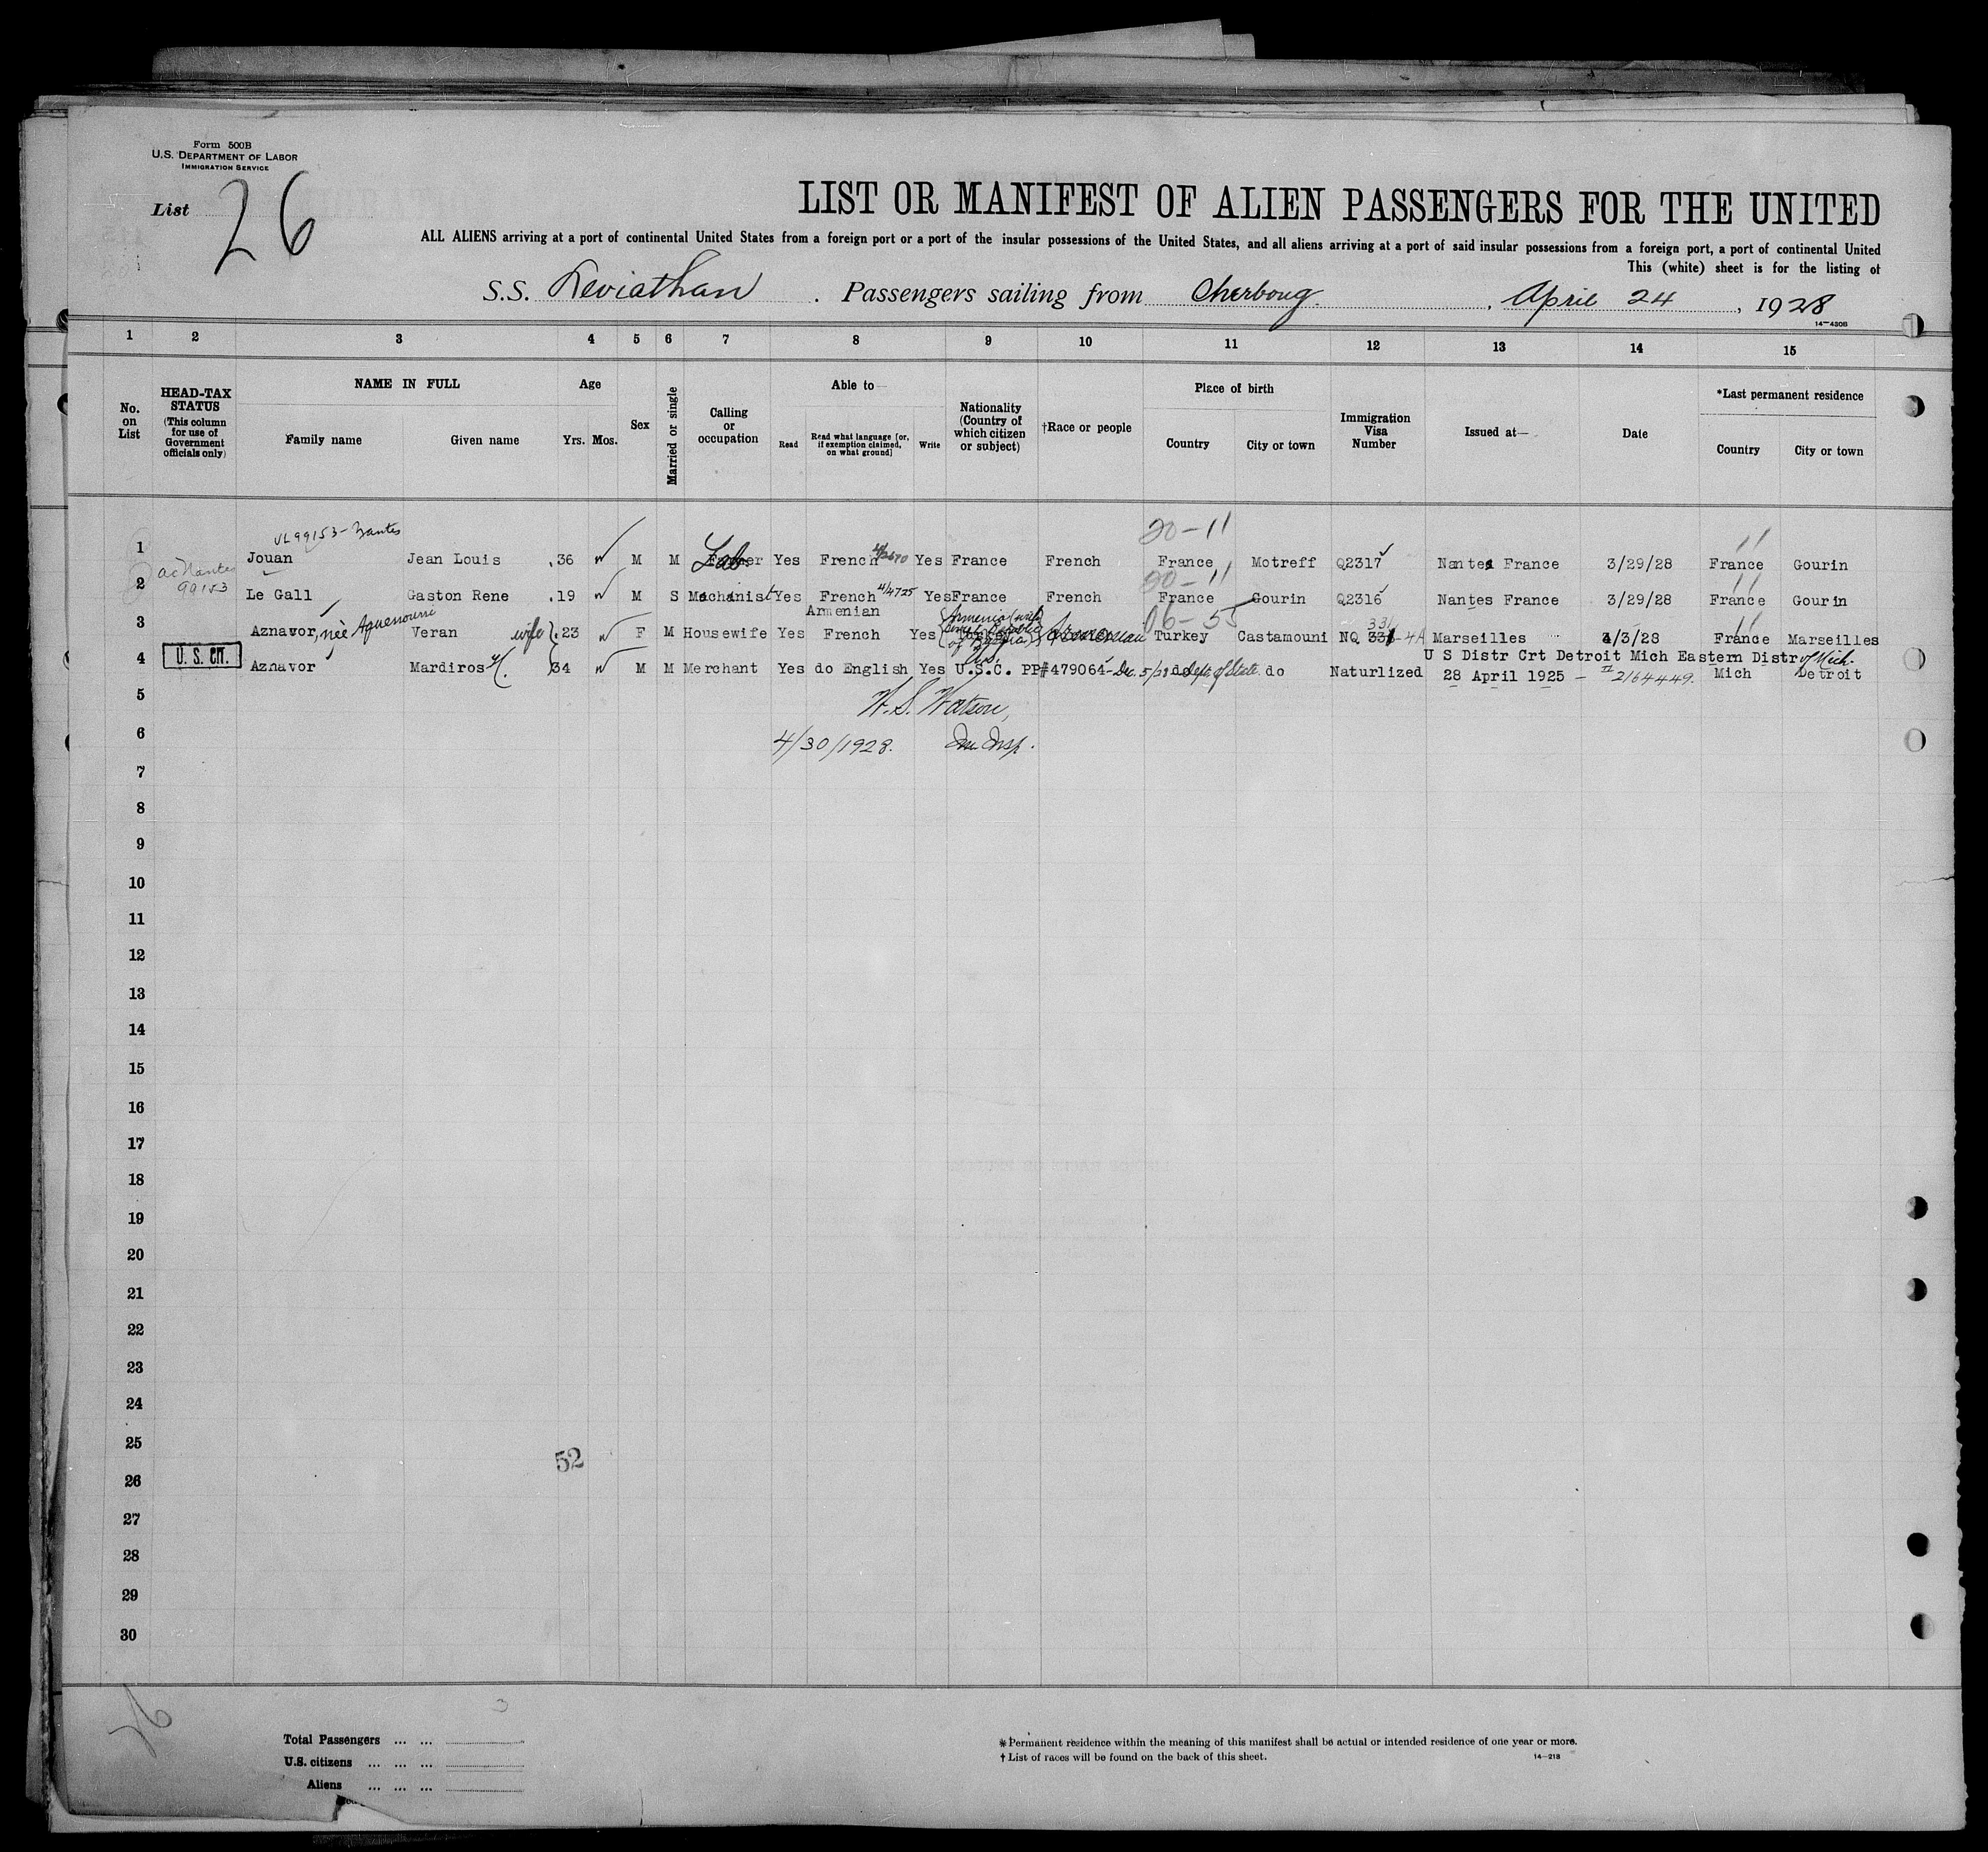 Form 500B
U.S. DEPARTMENT OF LABOR
IMMIGRATION SERVICE
List 26
LIST OR MANIFEST OF ALIEN PASSENGERS FOR THE UNITED
ALL ALIENS arriving at a port of continental United States from a foreign port or a port of the insular possessions of the United States, and all aliens arriving at a port of said insular possessions from a foreign port, a port of continental United
This (white) sheet is for the listing of
S.S. Leviathan . Passengers sailing from Cherboug , April 24 , 1928
14—430B
1 2 3 4 5 6 7 8 9 10 11 12 13 14 15
No. on List
HEAD-TAX STATUS
(This column for use of Government officials only)
NAME IN FULL
Family name Given name
Age
Yrs. Mos.
Sex
Married or single
Calling or occupation
Able to—
Read
Read what language [or, if exemption claimed, on what ground]
Write
Nationality (Country of which citizen or subject)
†Race or people
Place of birth
Country City or town
Immigration Visa Number
Issued at—
Date
*Last permanent residence
Country City or town
VL99153-Nantes 20-11 11
1 Jouan Jean Louis 36 M M Lab. Yes French Yes France French France Motreff Q2317 Nantes France 3/29/28 France Gourin
Nantes 99153 20-11 11
2 Le Gall Gaston Rene 19 M S Machinist Yes French 4/4725 Yes France French France Gourin Q2316 Nantes France 3/29/28 France Gourin
Armenian 06-55 331 11
3 Aznavor, née Veran wife 23 F M Housewife Yes French Yes Armenian Turkey Castamouni NQ Marseilles 4/3/28 France Marseilles
U S Distr Crt Detroit Mich Eastern Distr of Mich.
4 U. S. CIT. Aznavor Mardiros 34 M M Merchant Yes do English Yes U.S.C. PP#479064 Dept. of State do Naturlized 28 April 1925 - 2164449. Mich Detroit
5
W. S. Watson,
6 4/30/1928. Imm Insp.
7
8
9
10
11
12
13
14
15
16
17
18
19
20
21
22
23
24
25
52
26
27
28
29
30
26
3
Total Passengers ... ...
U.S. citizens ... ... ...
Aliens ... ... ...
* Permanent residence within the meaning of this manifest shall be actual or intended residence of one year or more.
† List of races will be found on the back of this sheet.
14—218